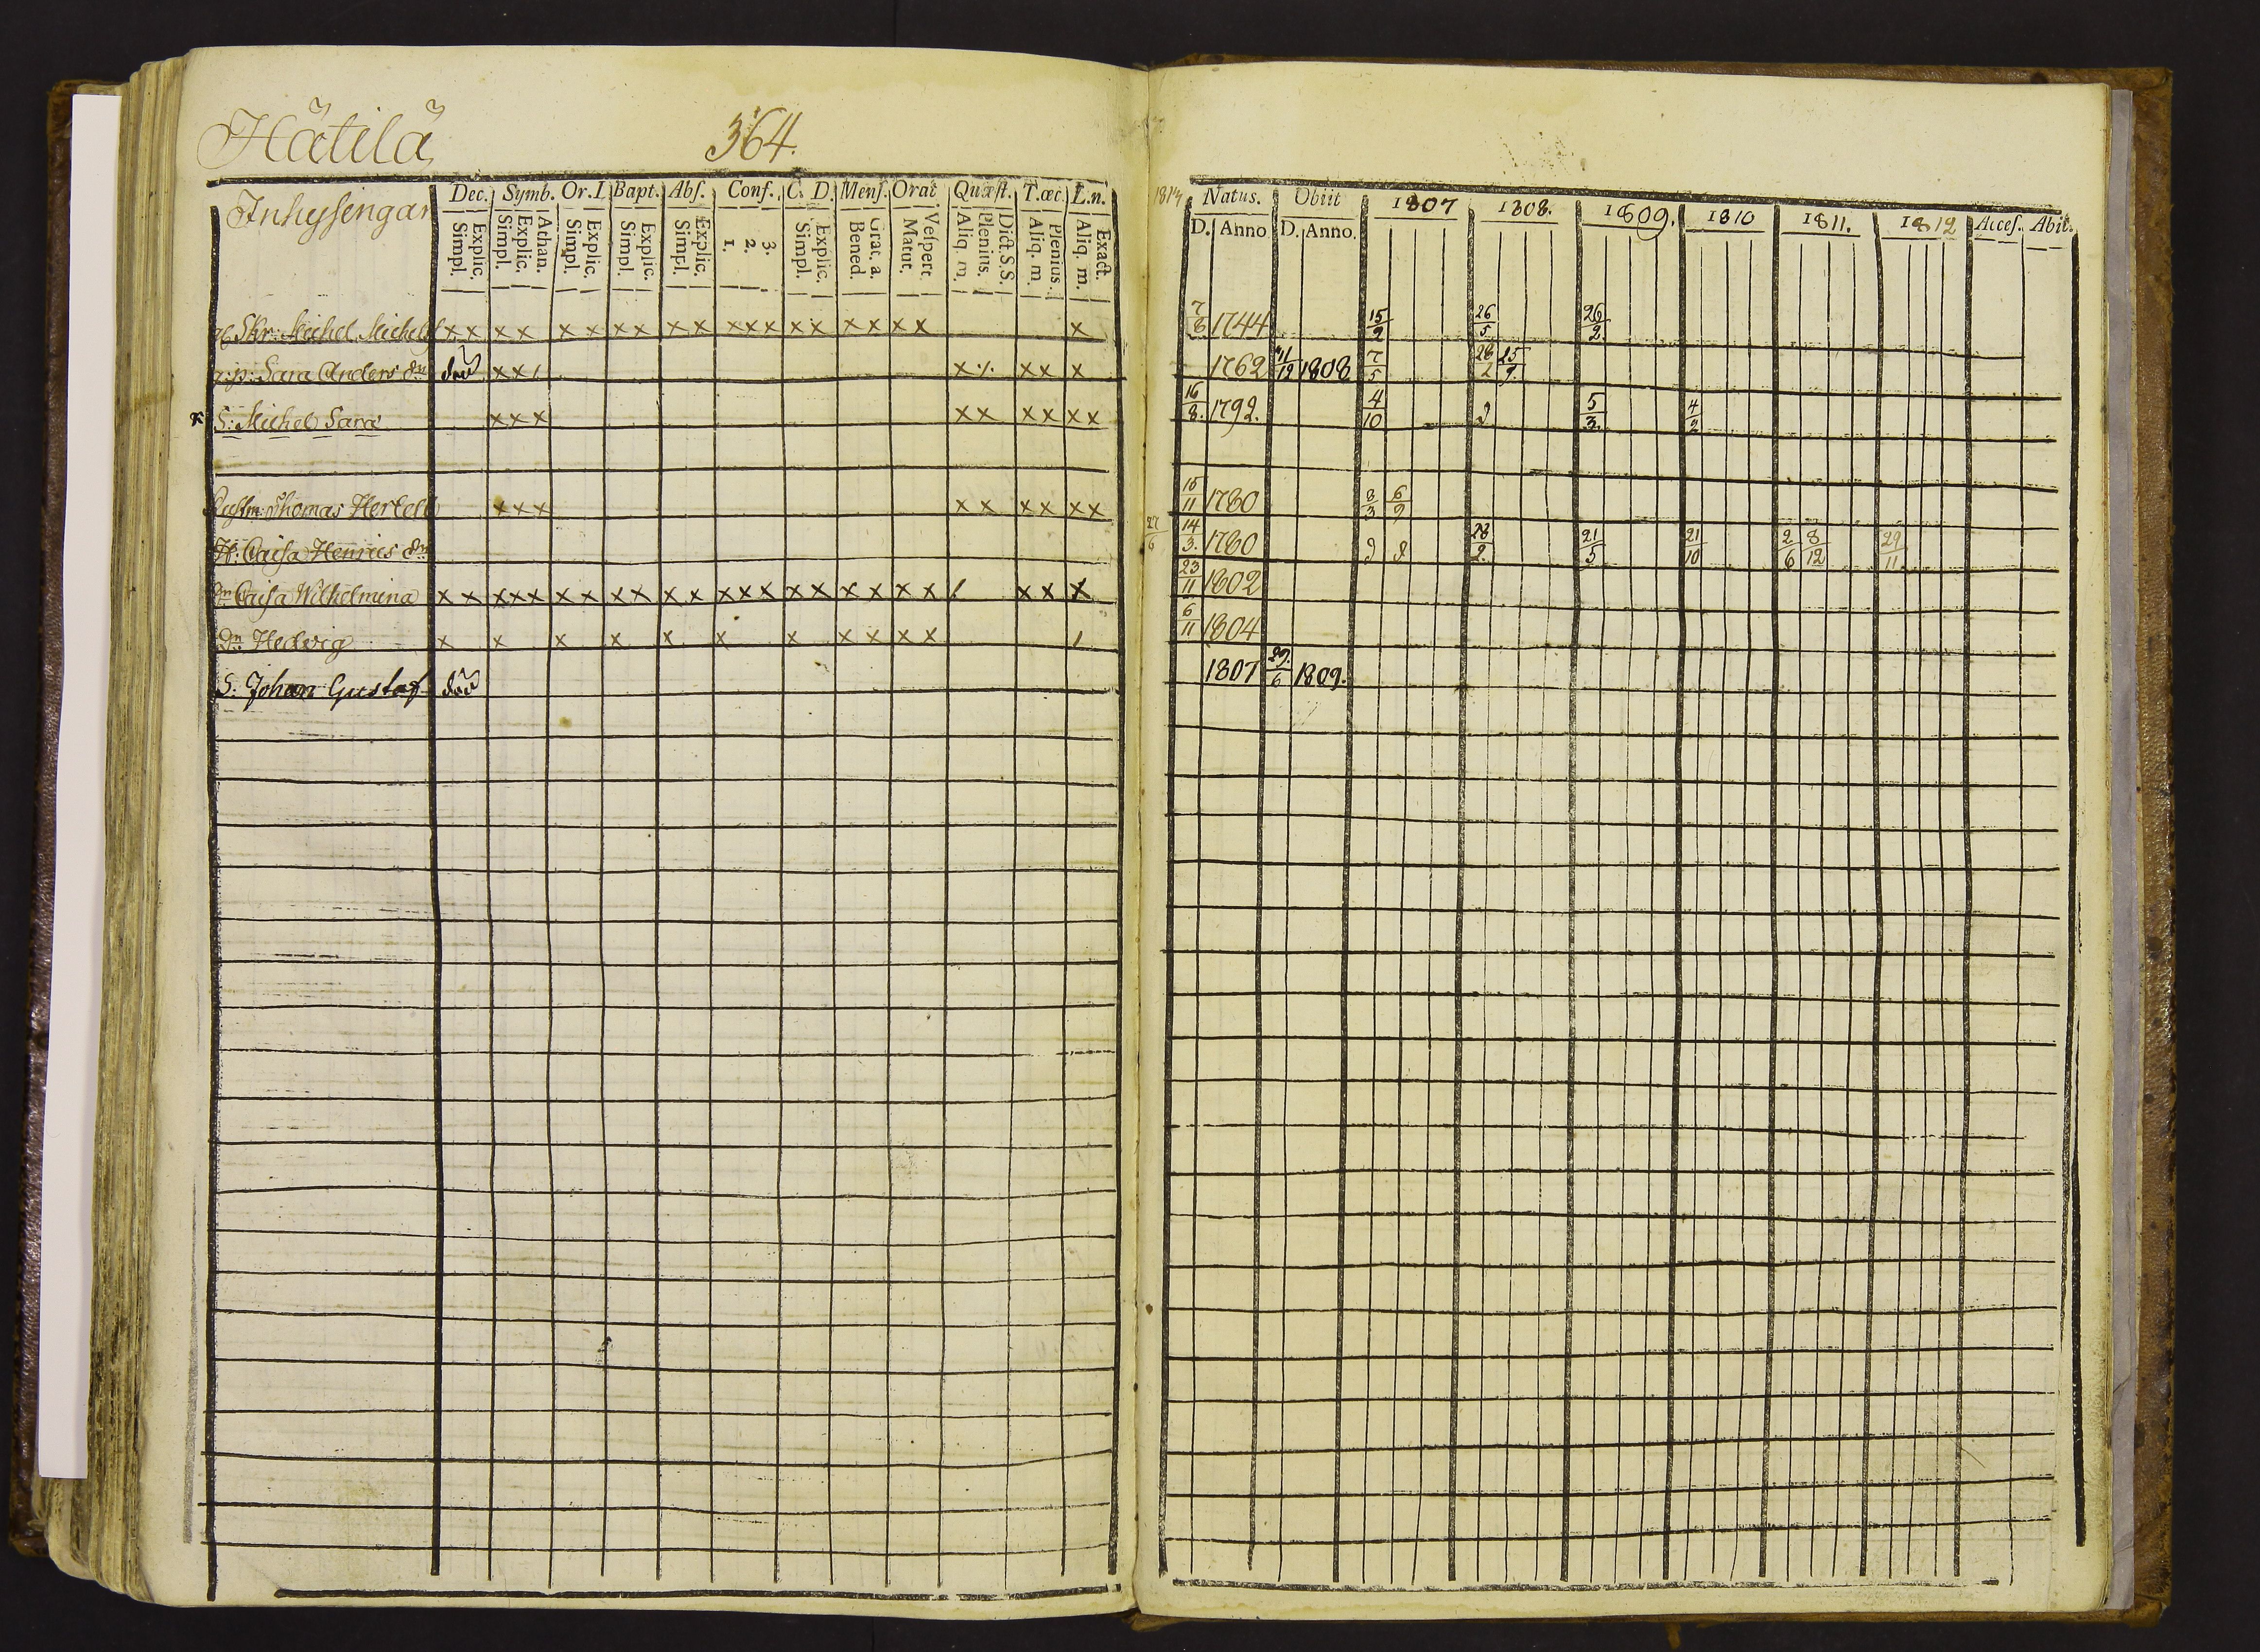 Hätilä 364.
Inhysingar Dec. Symb. Or. I. Bapt. Abs. Conf. C. D. Mens. Orat. Quæst. T. œc. L. n.
Explic. Simpl. Athan. Explic. Simpl. Explic. Simpl. Explic. Simpl. Explic. Simpl. 3. 2. 1. Explic. Simpl. Grat. a. Bened. Vespert. Matut. Dict. S. S. Plenius. Aliq. m. Plenius. Aliq. m. Exact. Aliq. m.
Skr: Michel Michels x x x x x x x x x x x x x x x x x x x x
Sara Anders dr död x x / x /. x x x
x S: Michel Sara x x x x x x x x x
Thomas Hertell x x x x x x x x x
H: Caisa Henrics dr
Dr Caisa Wilhelmina x x x x x x x x x x x x x x x x x x x x / x x x
Dr Hedvig x x x x x x x x x x x /
S: Johan Gustaf död
1813 Natus. Obiit 1807 1808. 1809. 1810 1811. 1812 Acces. Abit.
D. Anno D. Anno.
7/6 1744 15/2 26/5 26/2
1762 11/12 1808 7/5 28/2 25/9
16/8. 1792. 4/10 5/3. 4/2
15/11 1780 8/3 6/9
27/6 14/3. 1780 28/2. 21/5 21/10 2/6 8/12 29/11
23/11 1802
6/11 1804
1807 29./6 1809.